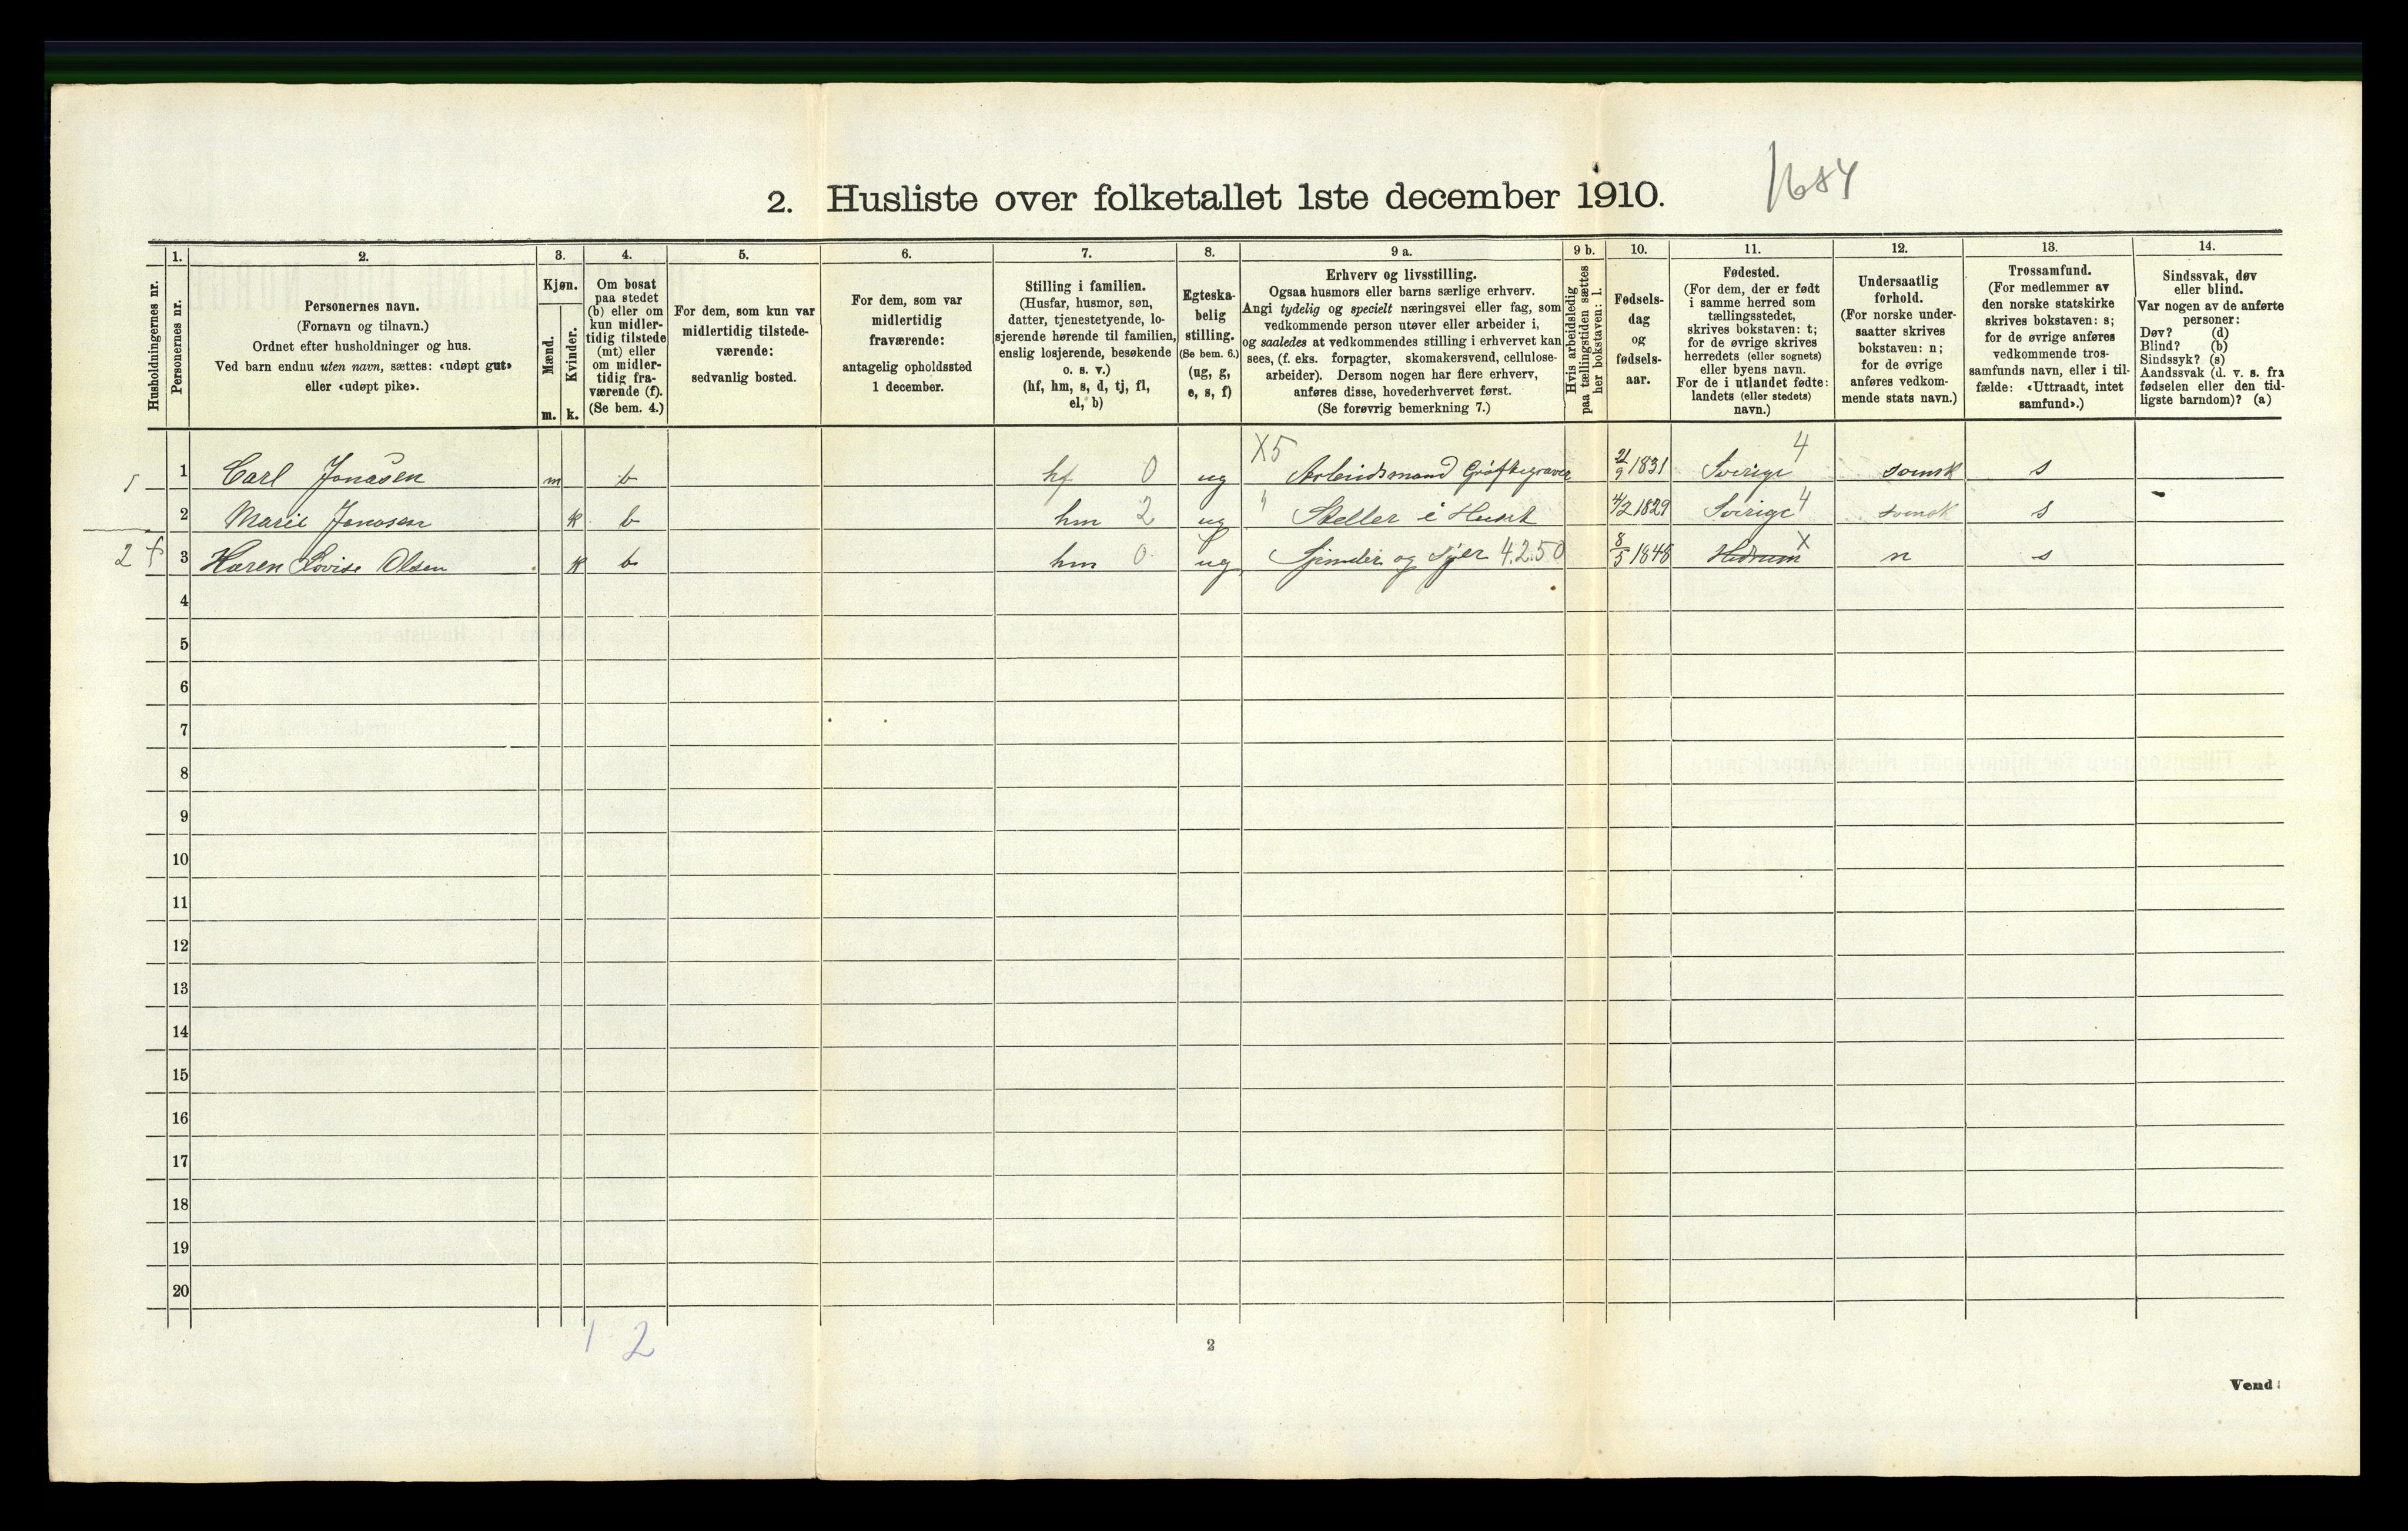 2. Husliste over folketallet 1ste december 1910. 1684
1. 2. 3. 4. 5. 6. 7. 8. 9 a. 9 b. 10. 11. 12. 13. 14.
Husholdningernes nr.
Personernes nr.
Personernes navn.
(Fornavn og tilnavn.)
Ordnet efter husholdninger og hus.
Ved barn endnu uten navn, sættes: «udøpt gut»
eller «udøpt pike».
Kjøn.
Mænd.
Kvinder.
m. k.
Om bosat
paa stedet
(b) eller om
kun midler-
tidig tilstede
(mt) eller
om midler-
tidig fra-
værende (f).
(Se bem. 4.)
For dem, som kun var
midlertidig tilstede-
værende:
sedvanlig bosted.
For dem, som var
midlertidig
fraværende:
antagelig opholdssted
1 december.
Stilling i familien.
(Husfar, husmor, søn,
datter, tjenestetyende, lo-
sjerende hørende til familien,
enslig losjerende, besøkende
o. s. v.)
(hf, hm, s, d, tj, fl,
el, b)
Egteska-
belig
stilling.
(Se bem. 6.)
(ug, g,
e, s, f)
Erhverv og livsstilling.
Ogsaa husmors eller barns særlige erhverv.
Angi tydelig og specielt næringsvei eller fag, som
vedkommende person utøver eller arbeider i,
og saaledes at vedkommendes stilling i erhvervet kan
sees, (f. eks. forpagter, skomakersvend, cellulose-
arbeider). Dersom nogen har flere erhverv,
anføres disse, hovederhvervet først.
(Se forøvrig bemerkning 7.)
Hvis arbeidsledig
paa tællingstiden sættes
her bokstaven: l.
Fødsels-
dag
og
fødsels-
aar.
Fødested.
(For dem, der er født
i samme herred som
tællingsstedet,
skrives bokstaven: t;
for de øvrige skrives
herredets (eller sognets)
eller byens navn.
For de i utlandet fødte:
landets (eller stedets)
navn.)
Undersaatlig
forhold.
(For norske under-
saatter skrives
bokstaven: n;
for de øvrige
anføres vedkom-
mende stats navn.)
Trossamfund.
(For medlemmer av
den norske statskirke
skrives bokstaven: s;
for de øvrige anføres
vedkommende tros-
samfunds navn, eller i til-
fælde: «Uttraadt, intet
samfund».)
Sindssvak, døv
eller blind.
Var nogen av de anførte
personer:
Døv? (d)
Blind? (b)
Sindssyk? (s)
Aandssvak (d. v. s. fra
fødselen eller den tid-
ligste barndom)? (a)
1 1 Carl Jonasen m b hf 0 ug X5 Arbeidsmand Grøftegraver 21/9 1831 Sverige 4 svensk s
2 Marie Jonasen k b hm 2 ug " Steller i Huset 4/2 1829 Sverige 4 svensk s
2 3 Karen Lovise Olsen k b hm 0 ug Spinder og syer 4.2.50 8/5 1848 Hedrum X n s
4
5
6
7
8
9
10
11
12
13
14
15
16
17
18
19
20
1 2
2
Vend!